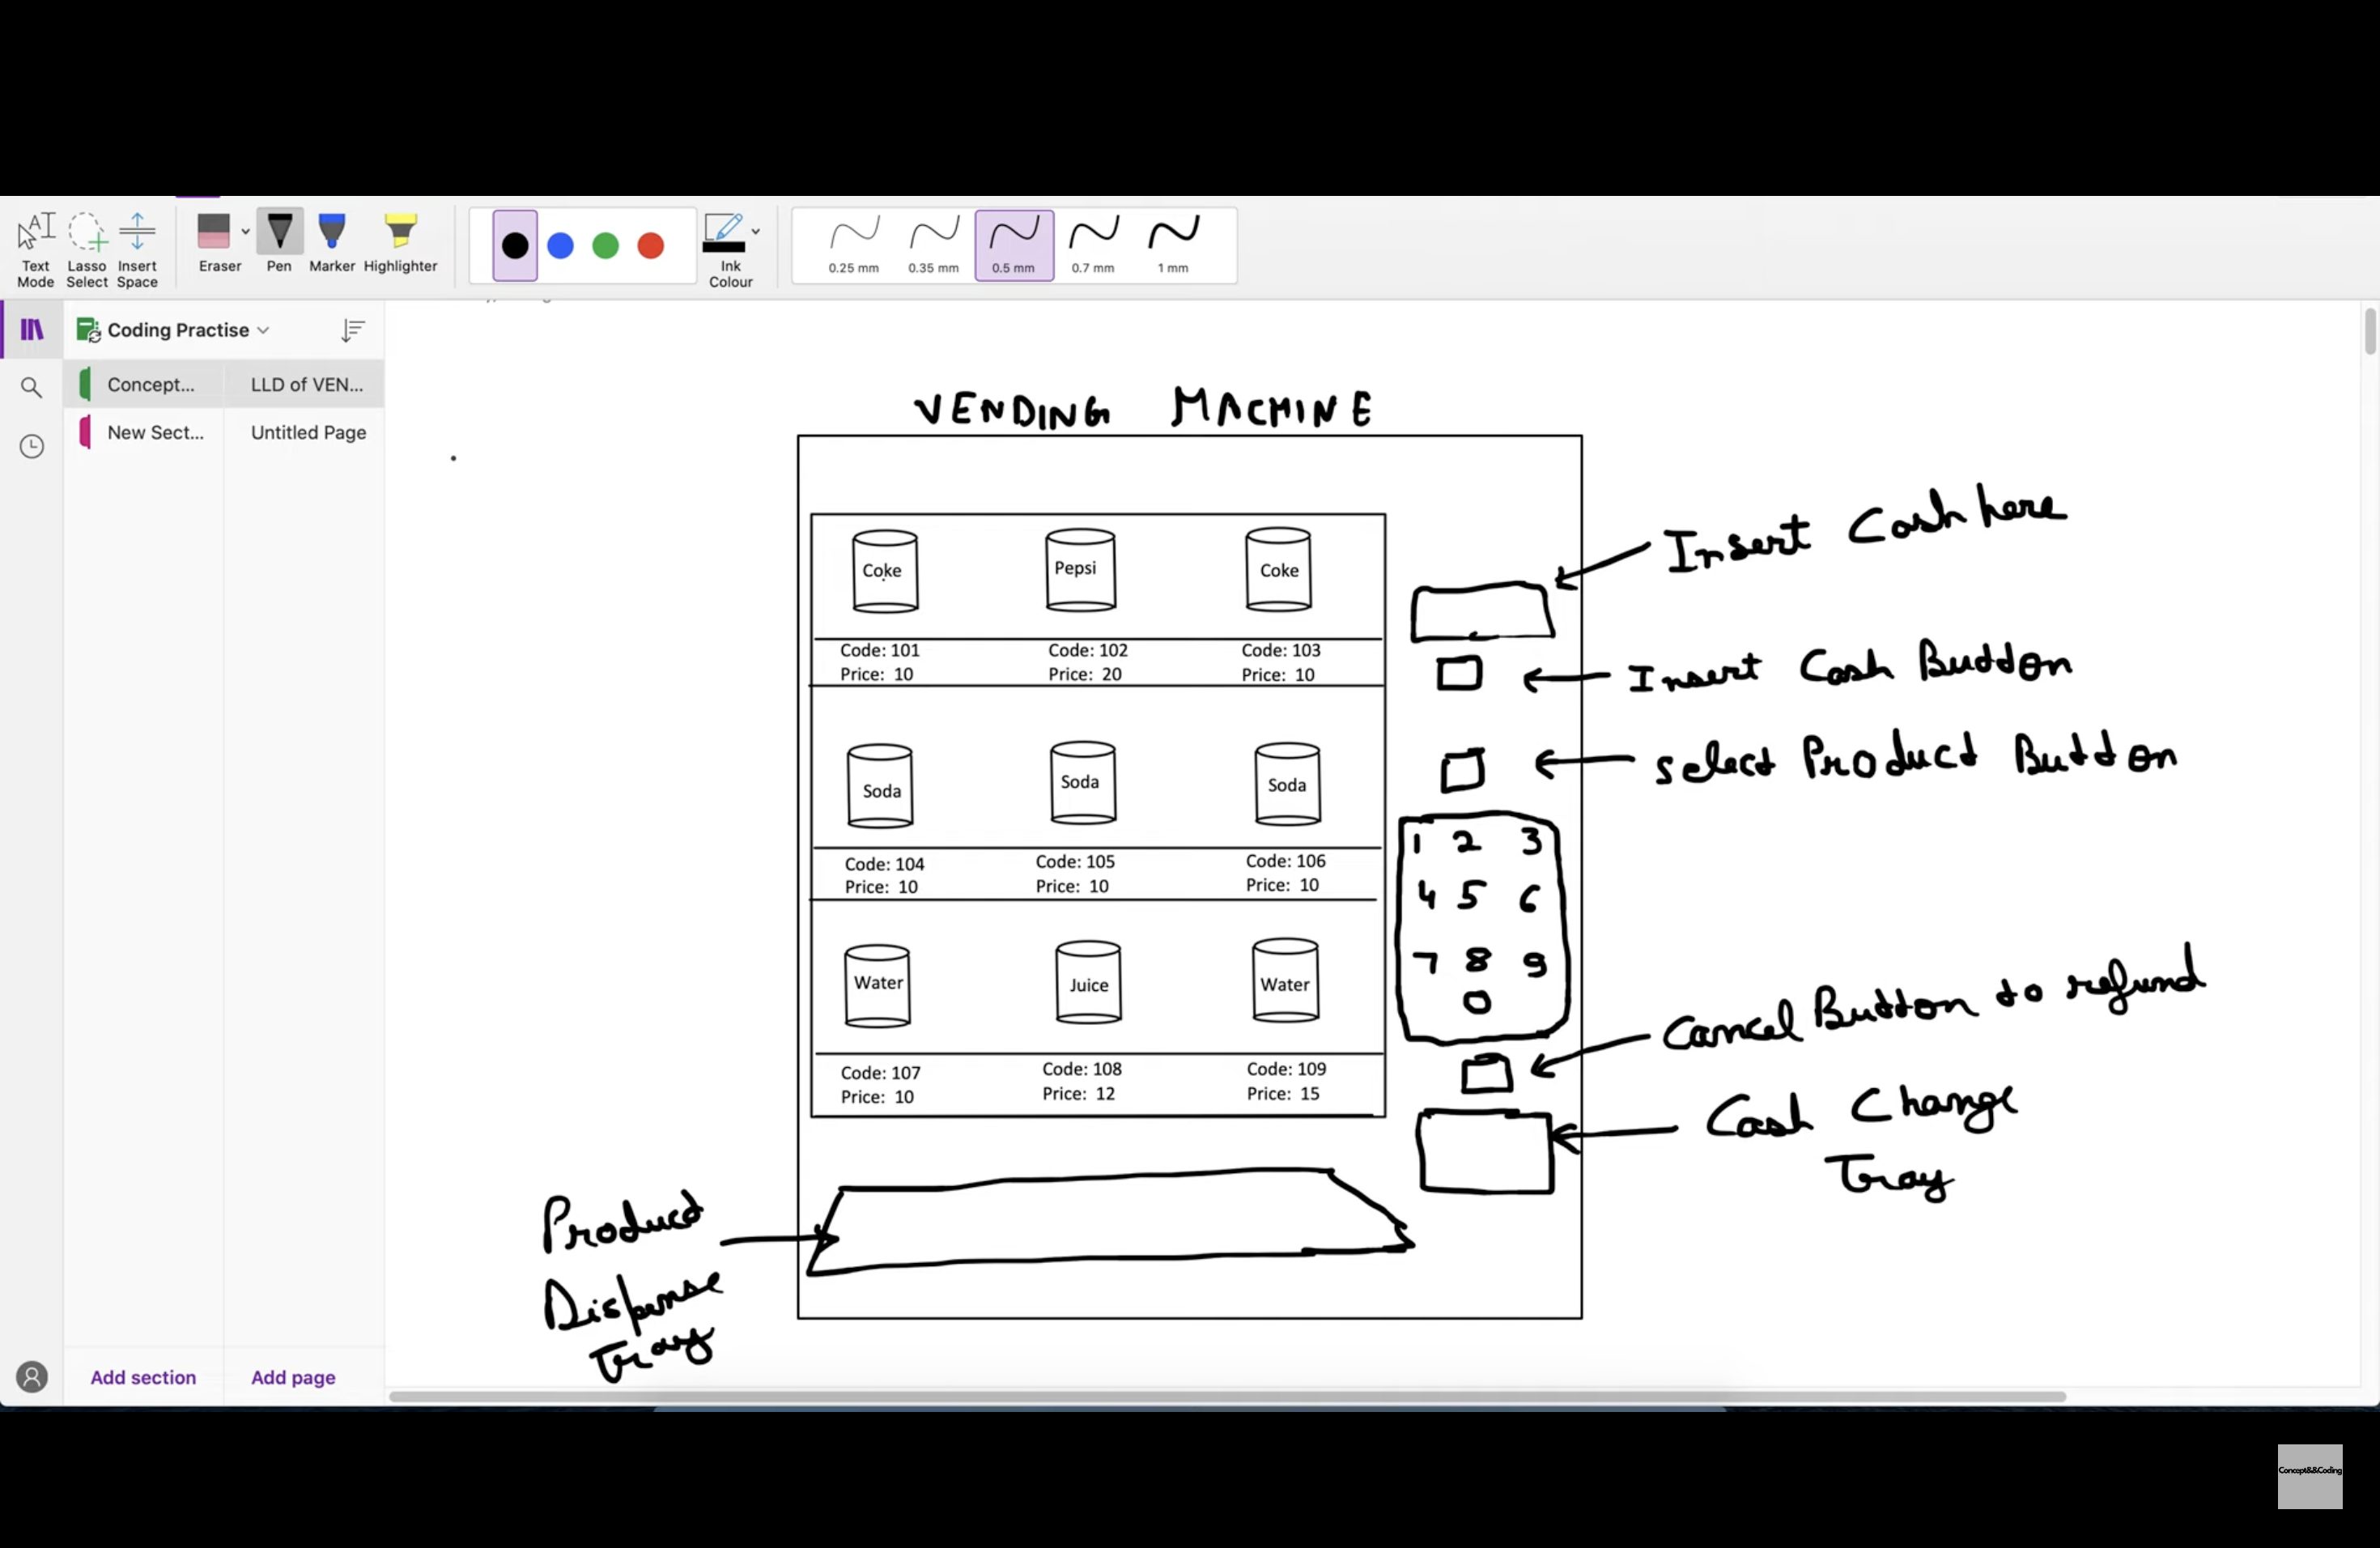 Text
Mode
Lasso
Select
Insert
Space
Eraser
Pen
Marker
Highlighter
Ink
Colour
0.25 mm
0.35 mm
0.5 mm
0.7 mm
1 mm
Coding Practise
Concept...
LLD of VEN...
New Sect...
Untitled Page
VENDING MACHINE
Coke
Pepsi
Coke
Code: 101
Price: 10
Code: 102
Price: 20
Code: 103
Price: 10
Soda
Soda
Soda
Code: 104
Price: 10
Code: 105
Price: 10
Code: 106
Price: 10
Water
Juice
Water
Code: 107
Price: 10
Code: 108
Price: 12
Code: 109
Price: 15
Insert Cash here
Insert Cash Button
Select Product Button
1 2 3
4 5 6
7 8 9
0
Cancel Button to refund
Cash Change
Tray
Product
Dispense
Tray
Add section
Add page
Concept&&Coding